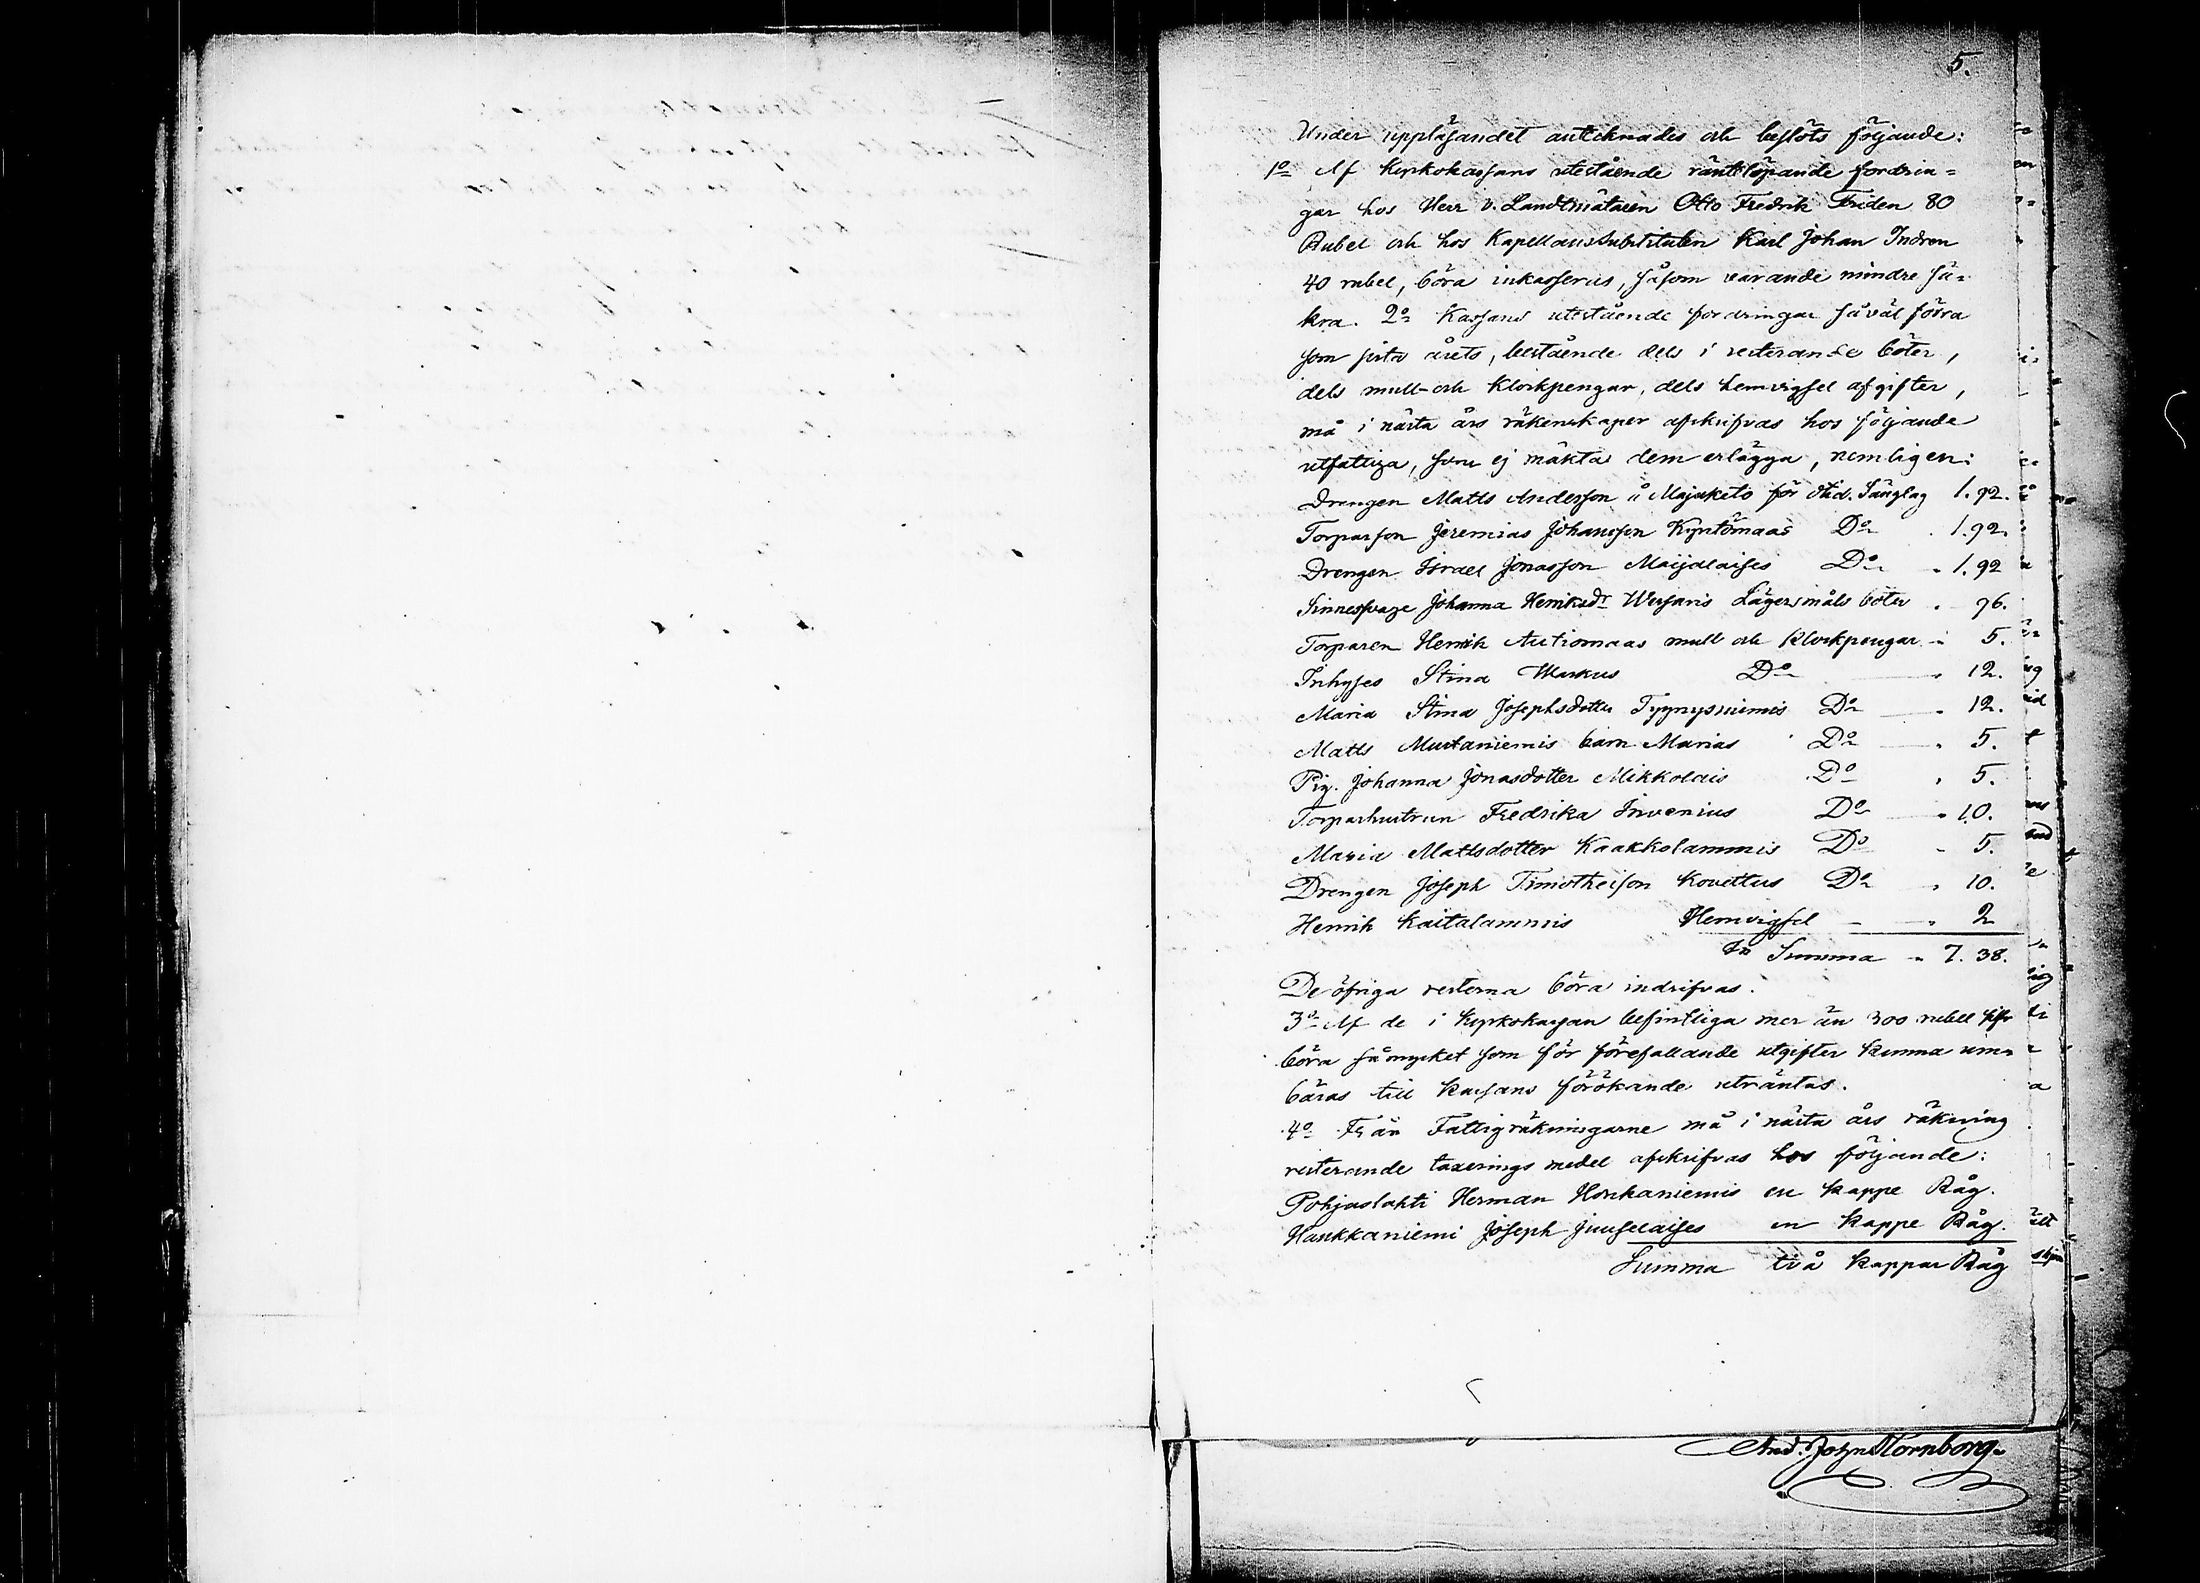 5.
Under uppläsandet antecknades och beslöts följande:
1o Af Kyrkokassans utestående räntelöpande fordrin=
gar hos Herr v. Landtmätaren Otto Fredrik Friden 80
Rubel och hos Kapellanssubstituten Karl Johan Indren
40 rubel, böra inkasseras, såsom varande mindre sä=
kra. 2o Kassans utestående fordringar såväl förra
som sista årets, bestående dels i resterande böter,
dels mull- och Klockpengar, dels hemvigsel afgifter,
må i nästa års räkenskaper afskrifvas hos följande
utfattiga, som ej mäkta dem erlägga, nemligen:
Drengen Matts Andersson å Majaketo för otid. Sänglag 1.92.
Torparson Jeremias Johansson Kyntömaas Do 1.92.
Drengen Israel Jonasson Maijalaises Do " 1.92
Sinnessvage Johanna Henriksdr Wessaris Lägersmåls böter " 96.
Torparen Henrik Autiomaas mull och Klockpengar " 5.
Inhyses Stina Markus Do " 12.
Maria Stina Josephsdotter Tyynysniemis Do " 12.
Matts Mustaniemis barn Marias Do " 5.
Pig. Johanna Jonasdotter Mikkolais Do " 5.
Torparhustrun Fredrika Invenius Do " 10.
Maria Mattsdotter Kaakkolammis Do " 5.
Drengen Joseph Timotheison Kovettus Do " 10.
Henrik Kaitalammis Hemvigsel " 2
Summa " 7. 38.
De öfriga resterna böra indrifvas.
3o Af de i Kyrkokassan befintliga mer än 300 rubel Silfr
böra så mycket som för förefallande utgifter kunna um=
bäras till kassans förökande uträntas.
4o Från Fattigräkningarne må i nästa års räkning
resterande taxerings medel afskrifvas hos följande:
Pohjaslahti Herman Honkaniemis en kappe Råg.
Haukkaniemi Joseph Juuselaises en kappe Råg.
Summa två kappar Råg
And. Joh:n Hornborg.